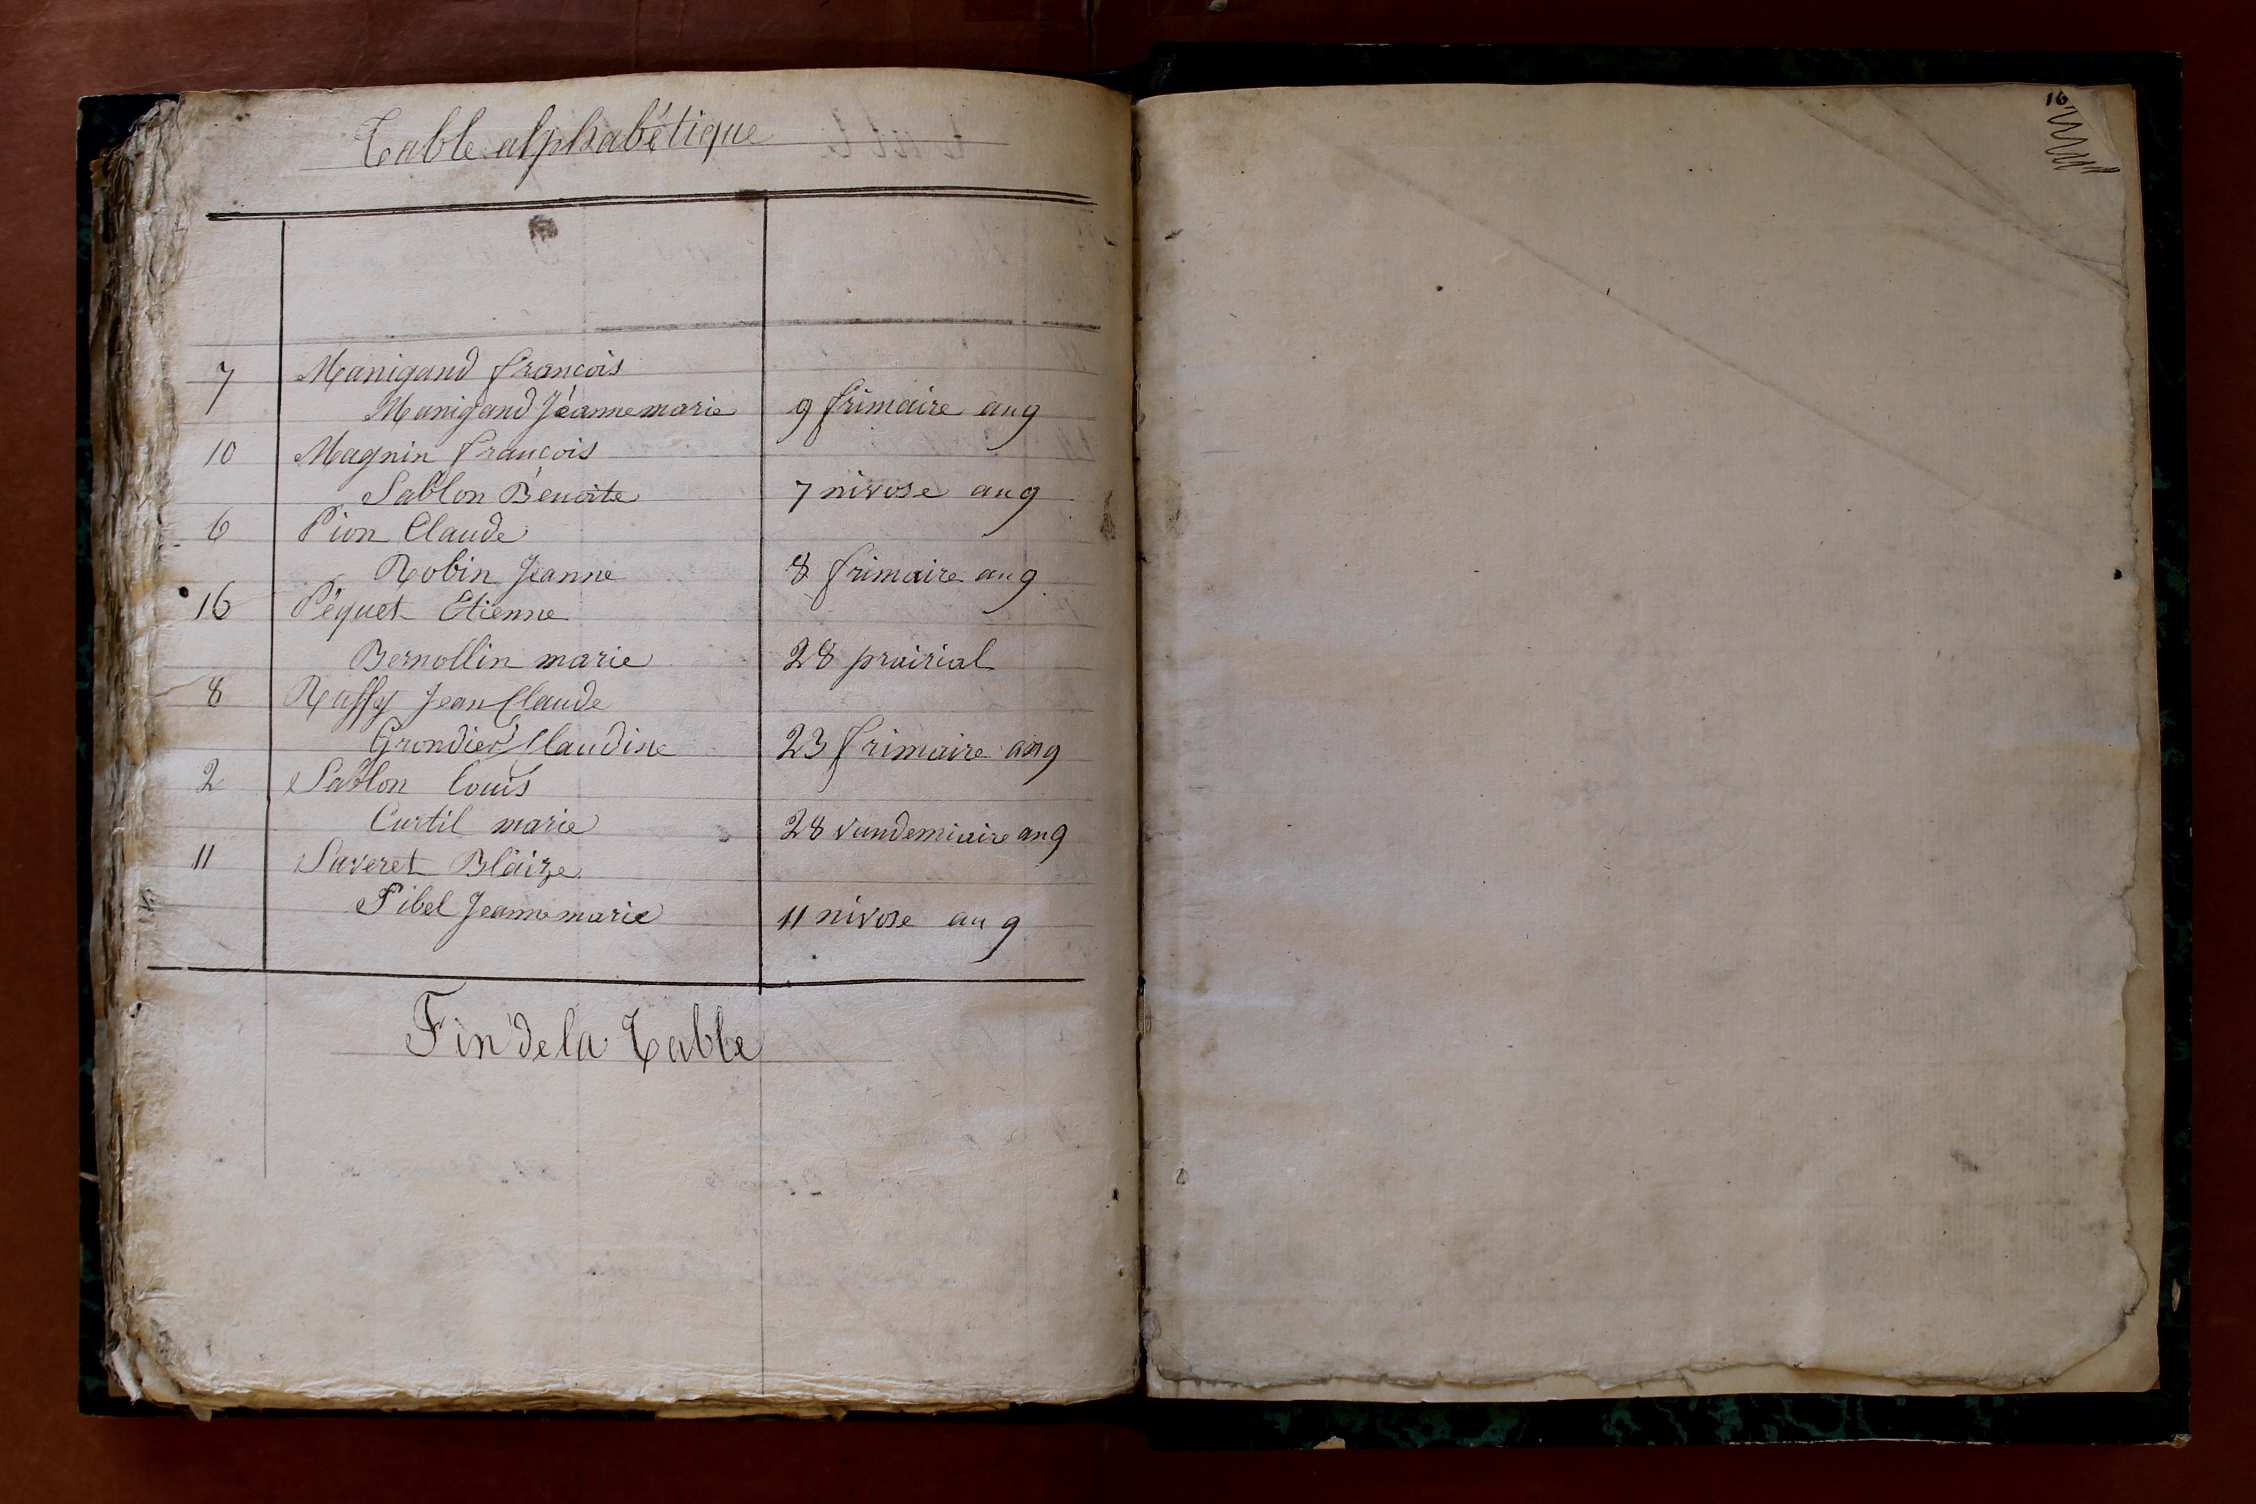 Table alphabétique
7 Manigand françois
Manigand Jéanne marie 9 frimaire an 9
10 Magnin françois
Sablon Bénoite 7 nivose an 9
6 Pion Claude
Robin Jeanne 8 frimaire an 9
16 Péquet Etienne
Bernollin marie 28 prairial
8 Ruffy Jean Claude
Grondier Claudine 23 frimaire an 9
2 Sablon Louis
Curtil marie 28 vendemiaire an 9
11 Saveret Blaize
Pibel Jeanne marie 11 nivose an 9
Fin de la Table
16